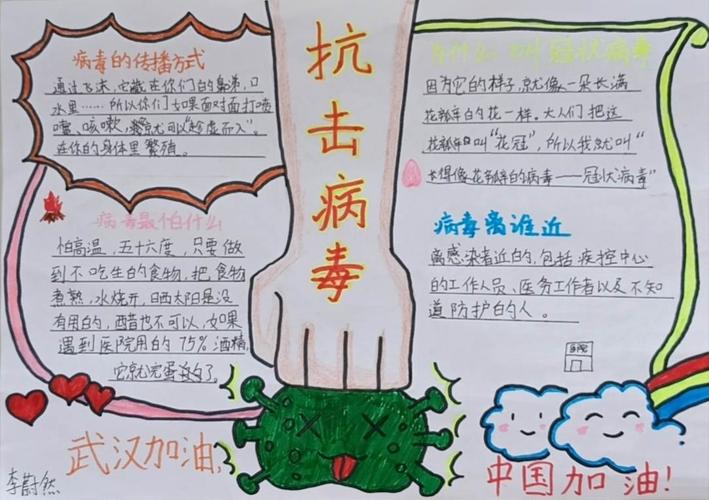 抗击病毒
病毒的传播方式
通过飞沫，它藏在你们的鼻涕，口
水里……所以你们如果面对面打喷
嚏、咳嗽，就可以"趁虚而入"。
在你的身体里繁殖。
病毒最怕什么
怕高温，五十六度，只要做
到不吃生的食物，把食物
煮熟，水烧开，日晒太阳是没
有用的，醋也不可以，如果
遇到医院用的75%酒精，
它就完蛋了。
为什么叫冠状病毒
因为它的样子，就像一朵长满
花瓣的花一样。大人们把这
花瓣叫"花冠"，所以我就叫"
长得像花瓣的病毒——冠状病毒"
病毒离谁近
离感染者近的，包括疾控中心
的工作人员、医务工作者以及不知
道防护的人。
武汉加油！
中国加油！
李蔚然